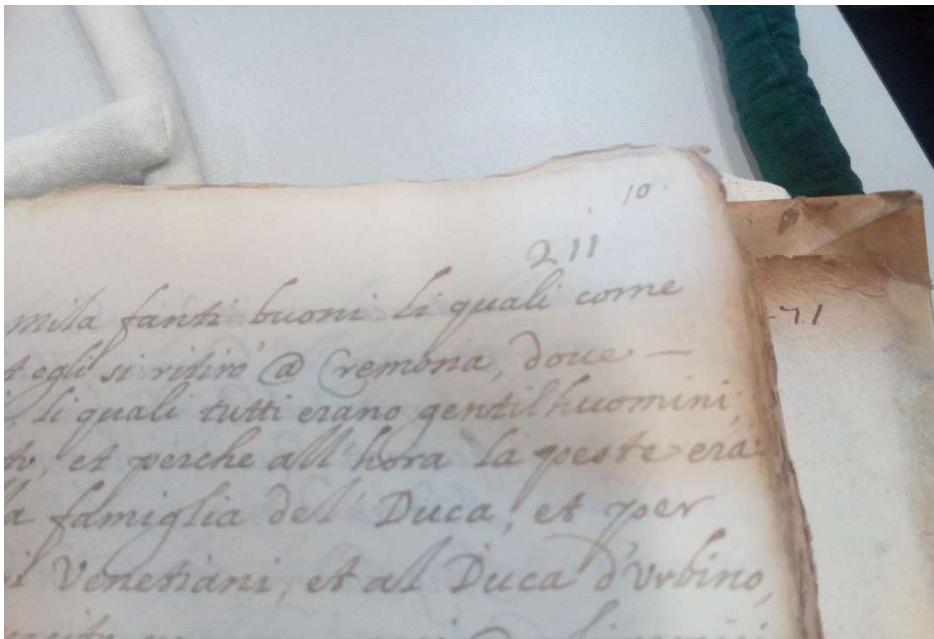 10
211
mila fanti buoni li quali come
egli si ritirò @ Cremona, doue —
li quali tutti erano gentilhuomini,
et perche all'hora la peste era
famiglia del Duca, et per
Venetiani, et al Duca d'Vrbino,
71